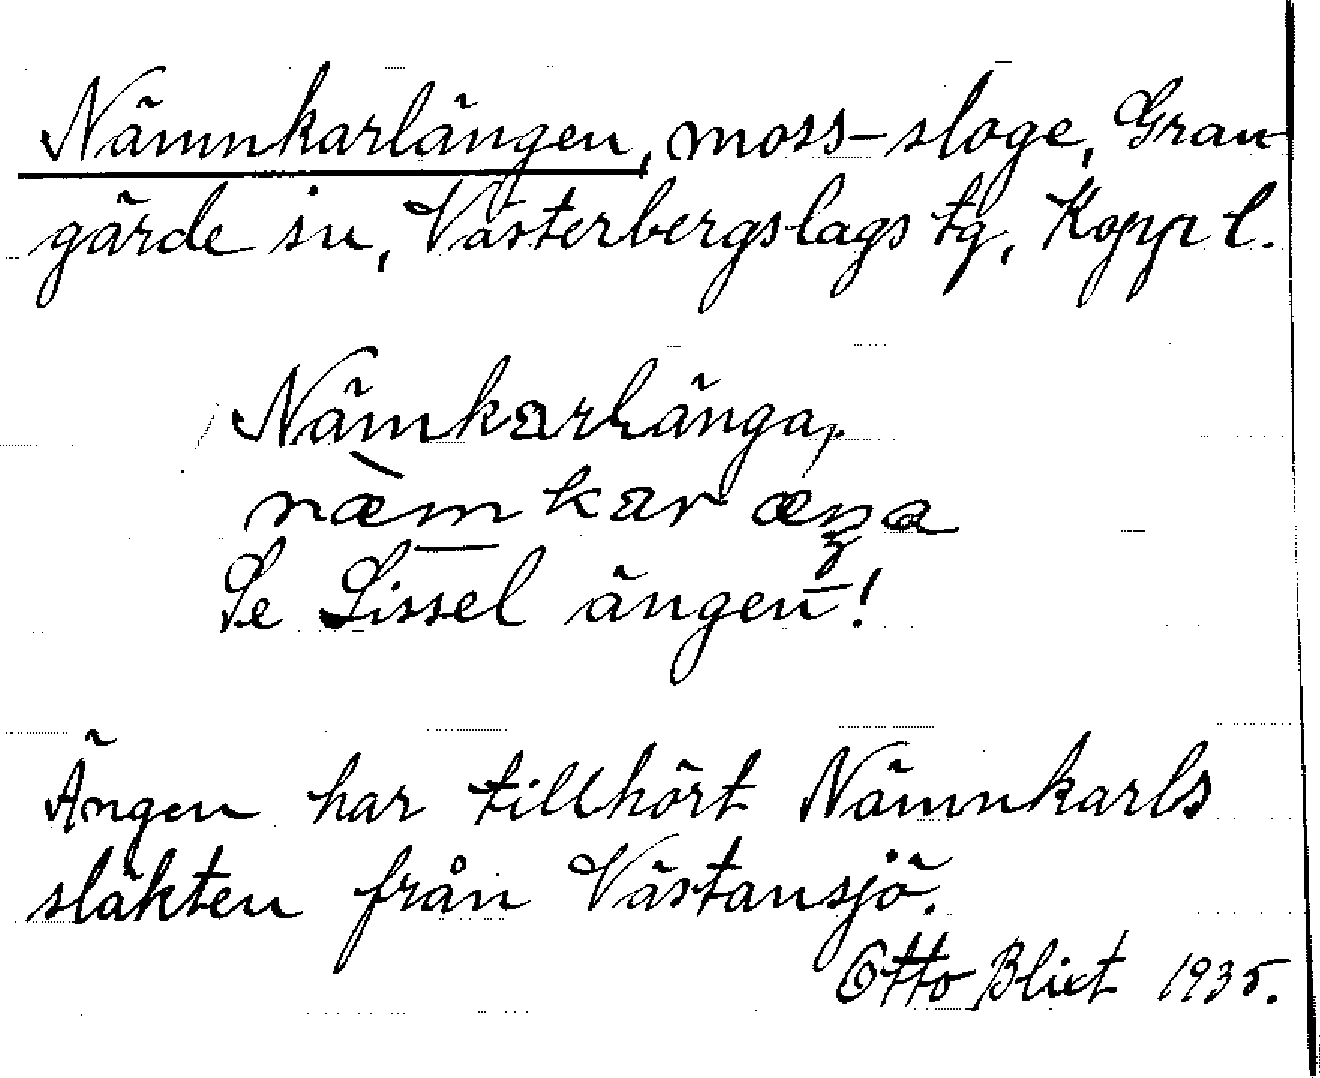 Nämnkarlängen, moss-sloge, Gran-
gärde sn, Västerbergslags tg, Kopp l.
Nämkarlänga,
næ̀mkaræŋa
Se Lissel ängen!
Ängen har tillhört Nämnkarls
släkten från Västansjö.
Otto Blixt 1935.